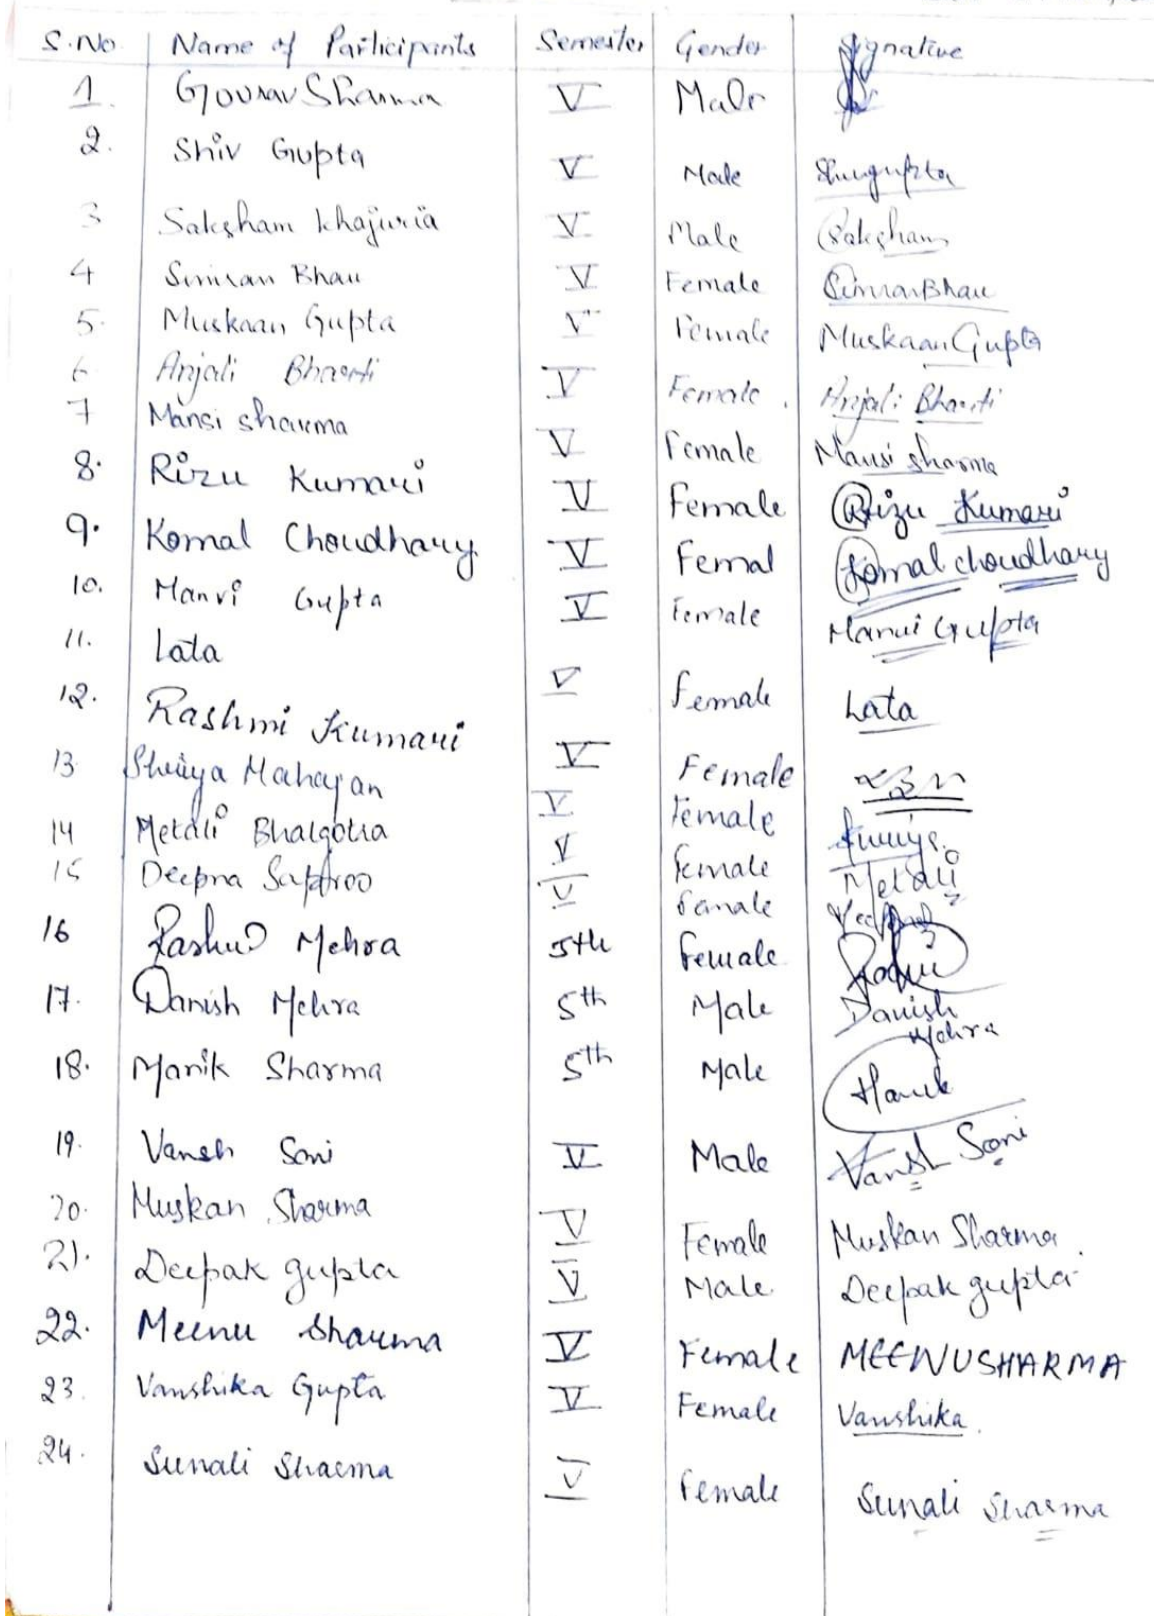 S.No. Name of Participants Semester Gender Signature
1. Gourav Sharma V Male
2. Shiv Gupta V Male Shivgupta
3 Saksham Khajuria V Male Saksham
4 Simran Bhau V Female Simran Bhau
5. Muskaan Gupta V Female Muskaan Gupta
6 Anjali Bharti V Female Anjali Bharti
7 Mansi sharma V Female Mansi sharma
8. Rizu Kumari V Female Rizu Kumari
9. Komal Choudhary V Femal Komal choudhary
10. Manvi Gupta V Female Manvi Gupta
11. Lata V Female Lata
12. Rashmi Kumari V Female
13 Shriya Mahajan V Female
14 Metali Bhalgotra V Female Metali
15 Deepna Saproo V Female
16 Mehra 5th Female
17. Danish Mehra 5th Male Danish Mehra
18. Manik Sharma 5th Male Manik
19. Vansh Soni V Male Vansh Soni
20. Muskan Sharma V Female Muskan Sharma
21. Deepak gupta V Male Deepak gupta
22. Meenu Sharma V Female MEENUSHARMA
23. Vanshika Gupta V Female Vanshika
24. Sunali Sharma V Female Sunali Sharma